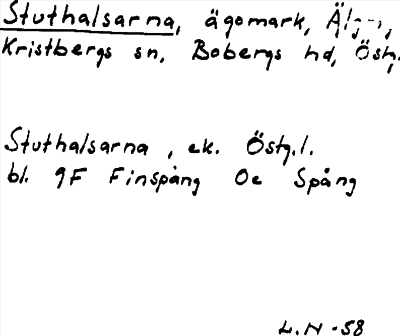 Stuthalsarna, ägomark,
Kristbergs sn, Bobergs hd, Östg.
Stuthalsarna, ek. Östg.l.
bl. 9F Finspång Oe Spång
L.N -58